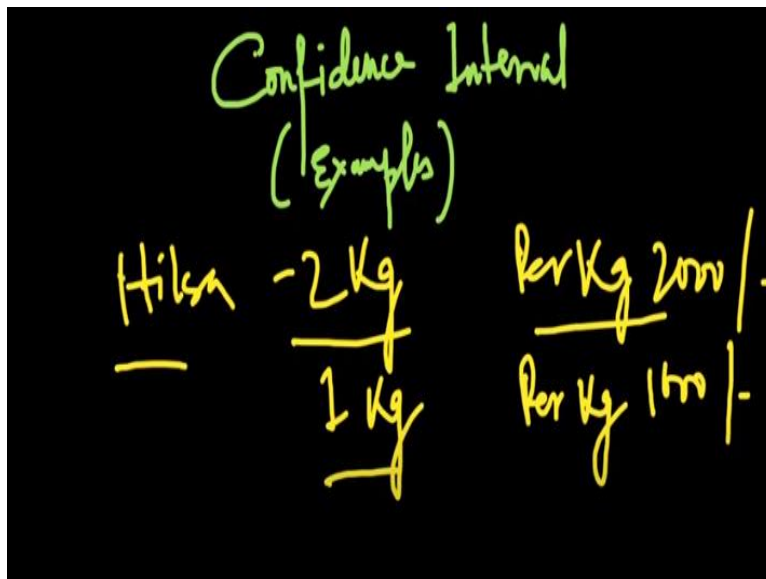 Confidence Interval
(Examples)
Hilsa - 2 Kg Per Kg 2000/-
1 Kg Per Kg 1000/-